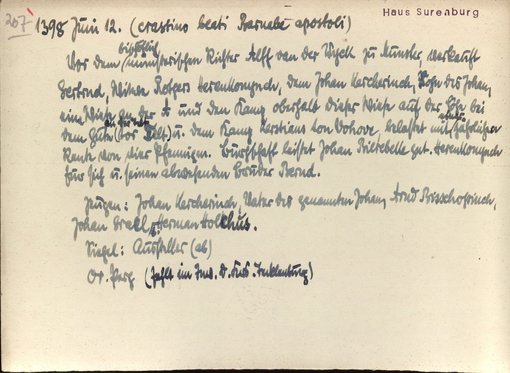 207
Haus Surenburg
1398 Juni 12. (crastino beati Barnabe apostoli)
Vor dem bischöflich münsterischen Richter Alff van der Wyck zu Münster, verkauft
Gertrud, Witwe Rotgers Herenkompesch, dem Johan Kerckerinch, Sohn des Johan,
eine Wiese an der A und den Kamp oberhalb dieser Wiese auf der bei
dem Gute (tor Velt) u. dem Kamp Kerstians von Vohove, belastet mit jährlicher
Rente von vier Pfennigen. Bürgschaft leistet Johan Biltebelle gnt. Herenkompesch
für sich u. seinen abwesenden Bruder Bernd.
Zeugen: Johan Kerckerinch, Vater des genannten Johan, Arnd Bisschopinch,
Johan Drael, Herman Holthus.
Siegel: Aussteller (ab)
Or. Perg. (Fehlt im Inv. d. Krs. Tecklenburg)